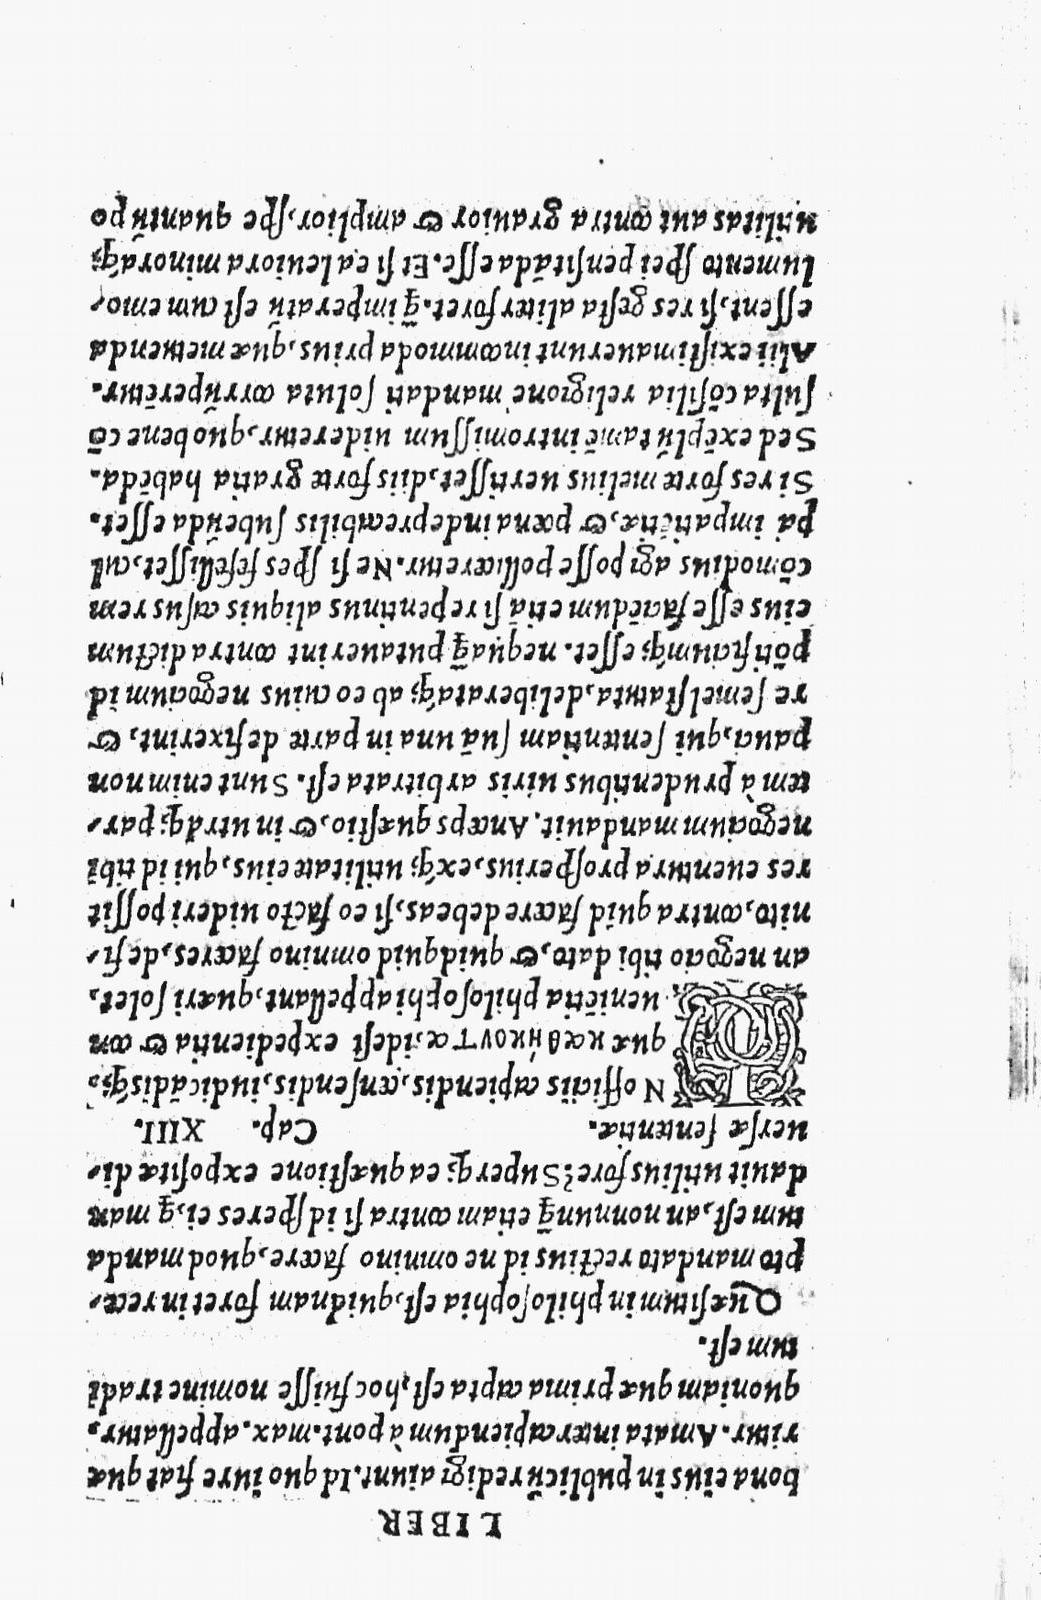 LIBER
bona eius in publicũ redigi aiunt. Id quo iure fiat quæ
ritur. Amata inter capiendum à pont. max. appellatur,
quoniam quæ prima capta est, hoc fuisse nomine tradi
tum est.
Quæsitum in philosophia est, quidnam foret in rece-
pto mandato rectius id ne omnino facere, quod manda
tum est, an nonnunq̃ etiam contra si id speres ei, q̃ man
dauit utilius fore: Superq́; ea quæstione expositæ di-
uersæ sententiæ. Cap. XIII.
IN officiis capiendis, censendis, iudicãdisq́;,
quæ καθήκοντα, idest expedientia & con
ueniẽtia philosophi appellant, quæri solet,
an negocio tibi dato, & quidquid omnino faceres, defi-
nito, contra quid facere debeas, si eo facto uideri possit
res euentura prosperius, exq́; utilitate eius, qui id tibi
negocium mandauit. Anceps quæstio, & in utrãq; par-
tem à prudentibus uiris arbitrata est. Sunt enim non
pauci, qui sententiam suã una in parte defixerint, &
re semel statuta, deliberataq́; ab eo cuius negocium id
põtificiumq́; esset. nequaq̃ putauerint contra dictum
eius esse faciẽdum etiã si repentinus aliquis casus rem
cõmodius agi posse polliceretur. Ne si spes fefellisset, cul
pa impatiẽtiæ, & pœna indeprecabilis subeũda esset.
Si res forte melius uertisset, diis forte gratia habẽda.
Sed exẽplũ tamẽ intromissum uideretur, quo bene cõ
sulta cõsilia religione mandati soluta corrũperẽtur.
Alii existimauerunt incommoda prius, quæ metuenda
essent, si res gesta aliter foret. q̃ imperatũ est cum emo-
lumento spei pensitãda esse. Et si ea leuiora minoraq́;
utilitas aut contra grauior & amplior, spe quantũ po